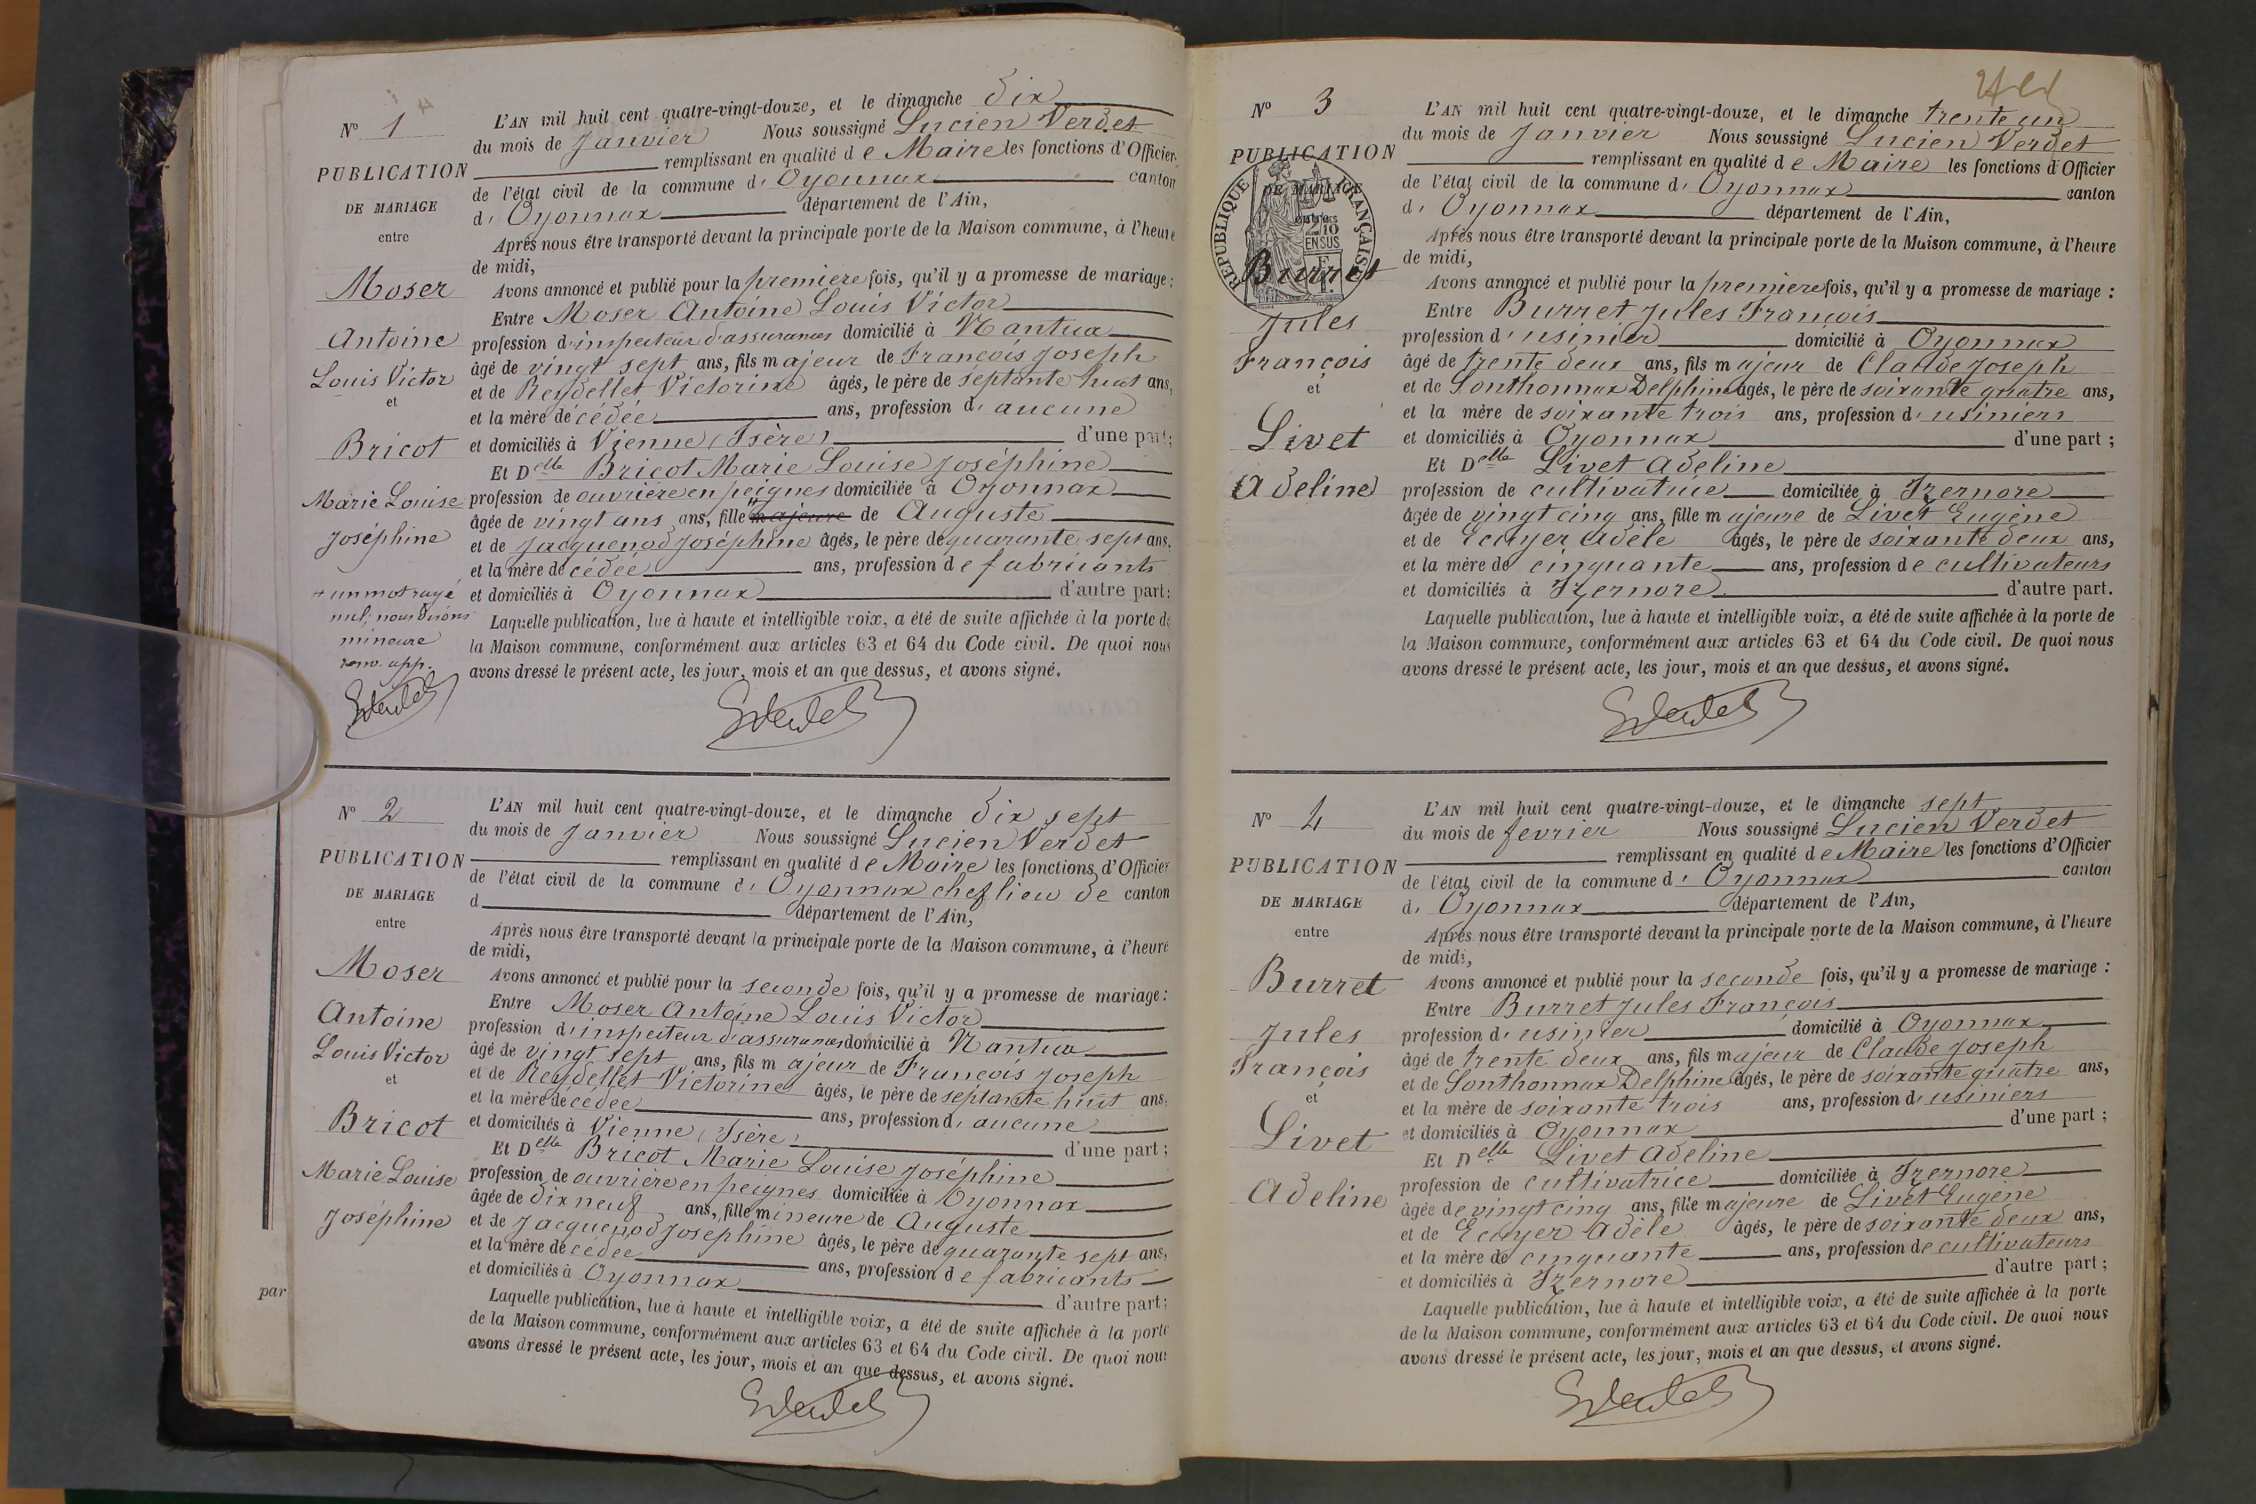 N° 1
PUBLICATION
DE MARIAGE
entre
Moser
Antoine
Louis Victor
et
Bricot
Marie Louise
Joséphine
+ un mot rayé
nul; nous disons
mineure
renv. app.
L'AN mil huit cent quatre-vingt-douze, et le dimanche dix
du mois de Janvier Nous soussigné Lucien Verdet
remplissant en qualité de Maire les fonctions d'Officier
de l'état civil de la commune d' Oyonnax canton
d' Oyonnax département de l'Ain,
Après nous être transporté devant la principale porte de la Maison commune, à l'heure
de midi,
Avons annoncé et publié pour la première fois, qu'il y a promesse de mariage;
Entre Moser Antoine Louis Victor
profession d'inspecteur d'assurances domicilié à Nantua
âgé de vingt sept ans, fils majeur de François Joseph
et de Reydellet Victorine âgés, le père de septante huit ans,
et la mère décédée ans, profession d' aucune
et domiciliés à Vienne (Isère) d'une part;
Et Delle Bricot Marie Louise Joséphine
profession de ouvrière en peignes domiciliée à Oyonnax
âgée de vingt ans ans, fille majeure de Auguste
et de Jacquenod Joséphine âgés, le père de quarante sept ans,
et la mère décédée ans, profession de fabricants
et domiciliés à Oyonnax d'autre part;
Laquelle publication, lue à haute et intelligible voix, a été de suite affichée à la porte de
la Maison commune, conformément aux articles 63 et 64 du Code civil. De quoi nous
avons dressé le présent acte, les jour, mois et an que dessus, et avons signé.
N° 2
PUBLICATION
DE MARIAGE
entre
Moser
Antoine
Louis Victor
et
Bricot
Marie Louise
Joséphine
L'AN mil huit cent quatre-vingt-douze, et le dimanche dix sept
du mois de Janvier Nous soussigné Lucien Verdet
remplissant en qualité de Maire les fonctions d'Officier
de l'état civil de la commune d' Oyonnax chef lieu de canton
d département de l'Ain,
Après nous être transporté devant la principale porte de la Maison commune, à l'heure
de midi,
Avons annoncé et publié pour la seconde fois, qu'il y a promesse de mariage:
Entre Moser Antoine Louis Victor
profession d'inspecteur d'assurances domicilié à Nantua
âgé de vingt sept ans, fils majeur de François Joseph
et de Reydellet Victorine âgés, le père de septante huit ans,
et la mère décédée ans, profession d' aucune
et domiciliés à Vienne (Isère) d'une part;
Et Delle Bricot Marie Louise Joséphine
profession de ouvrière en peignes domiciliée à Oyonnax
âgée de dix neuf ans, fille mineure de Auguste
et de Jacquenod Joséphine âgés, le père de quarante sept ans,
et la mère décédée ans, profession de fabricants
et domiciliés à Oyonnax d'autre part;
Laquelle publication, lue à haute et intelligible voix, a été de suite affichée à la porte
de la Maison commune, conformément aux articles 63 et 64 du Code civil. De quoi nous
avons dressé le présent acte, les jour, mois et an que dessus, et avons signé.
par
N° 3
PUBLICATION
DE MARIAGE
RÉPUBLIQUE FRANÇAISE
2/10
EN SUS
Burret
Jules
François
et
Livet
Adeline
L'AN mil huit cent quatre-vingt-douze, et le dimanche trente un
du mois de Janvier Nous soussigné Lucien Verdet
remplissant en qualité de Maire les fonctions d'Officier
de l'état civil de la commune d' Oyonnax canton
d' Oyonnax département de l'Ain,
Après nous être transporté devant la principale porte de la Maison commune, à l'heure
de midi,
Avons annoncé et publié pour la première fois, qu'il y a promesse de mariage :
Entre Burret Jules François
profession d' usinier domicilié à Oyonnax
âgé de trente deux ans, fils majeur de Claude Joseph
et de Sonthonnax Delphine âgés, le père de soixante quatre ans,
et la mère de soixante trois ans, profession d' usiniers
et domiciliés à Oyonnax d'une part ;
Et Delle Livet Adeline
profession de cultivatrice domiciliée à Izernore
âgée de vingt cinq ans, fille majeure de Livet Eugène
et de Ecuyer Adèle âgés, le père de soixante deux ans,
et la mère de cinquante ans, profession de cultivateurs
et domiciliés à Izernore d'autre part.
Laquelle publication, lue à haute et intelligible voix, a été de suite affichée à la porte de
la Maison commune, conformément aux articles 63 et 64 du Code civil. De quoi nous
avons dressé le présent acte, les jour, mois et an que dessus, et avons signé.
N° 4
PUBLICATION
DE MARIAGE
entre
Burret
Jules
François
et
Livet
Adeline
L'AN mil huit cent quatre-vingt-douze, et le dimanche sept
du mois de fevrier Nous soussigné Lucien Verdet
remplissant en qualité de Maire les fonctions d'Officier
de l'état civil de la commune d' Oyonnax canton
d' Oyonnax département de l'Ain,
Après nous être transporté devant la principale porte de la Maison commune, à l'heure
de midi,
Avons annoncé et publié pour la seconde fois, qu'il y a promesse de mariage :
Entre Burret Jules François
profession d' usinier domicilié à Oyonnax
âgé de trente deux ans, fils majeur de Claude Joseph
et de Sonthonnax Delphine âgés, le père de soixante quatre ans,
et la mère de soixante trois ans, profession d' usiniers
et domiciliés à Oyonnax d'une part ;
Et Delle Livet Adeline
profession de cultivatrice domiciliée à Izernore
âgée de vingt cinq ans, fille majeure de Livet Eugène
et de Ecuyer Adèle âgés, le père de soixante deux ans,
et la mère de cinquante ans, profession de cultivateurs
et domiciliés à Izernore d'autre part ;
Laquelle publication, lue à haute et intelligible voix, a été de suite affichée à la porte
de la Maison commune, conformément aux articles 63 et 64 du Code civil. De quoi nous
avons dressé le présent acte, les jour, mois et an que dessus, et avons signé.